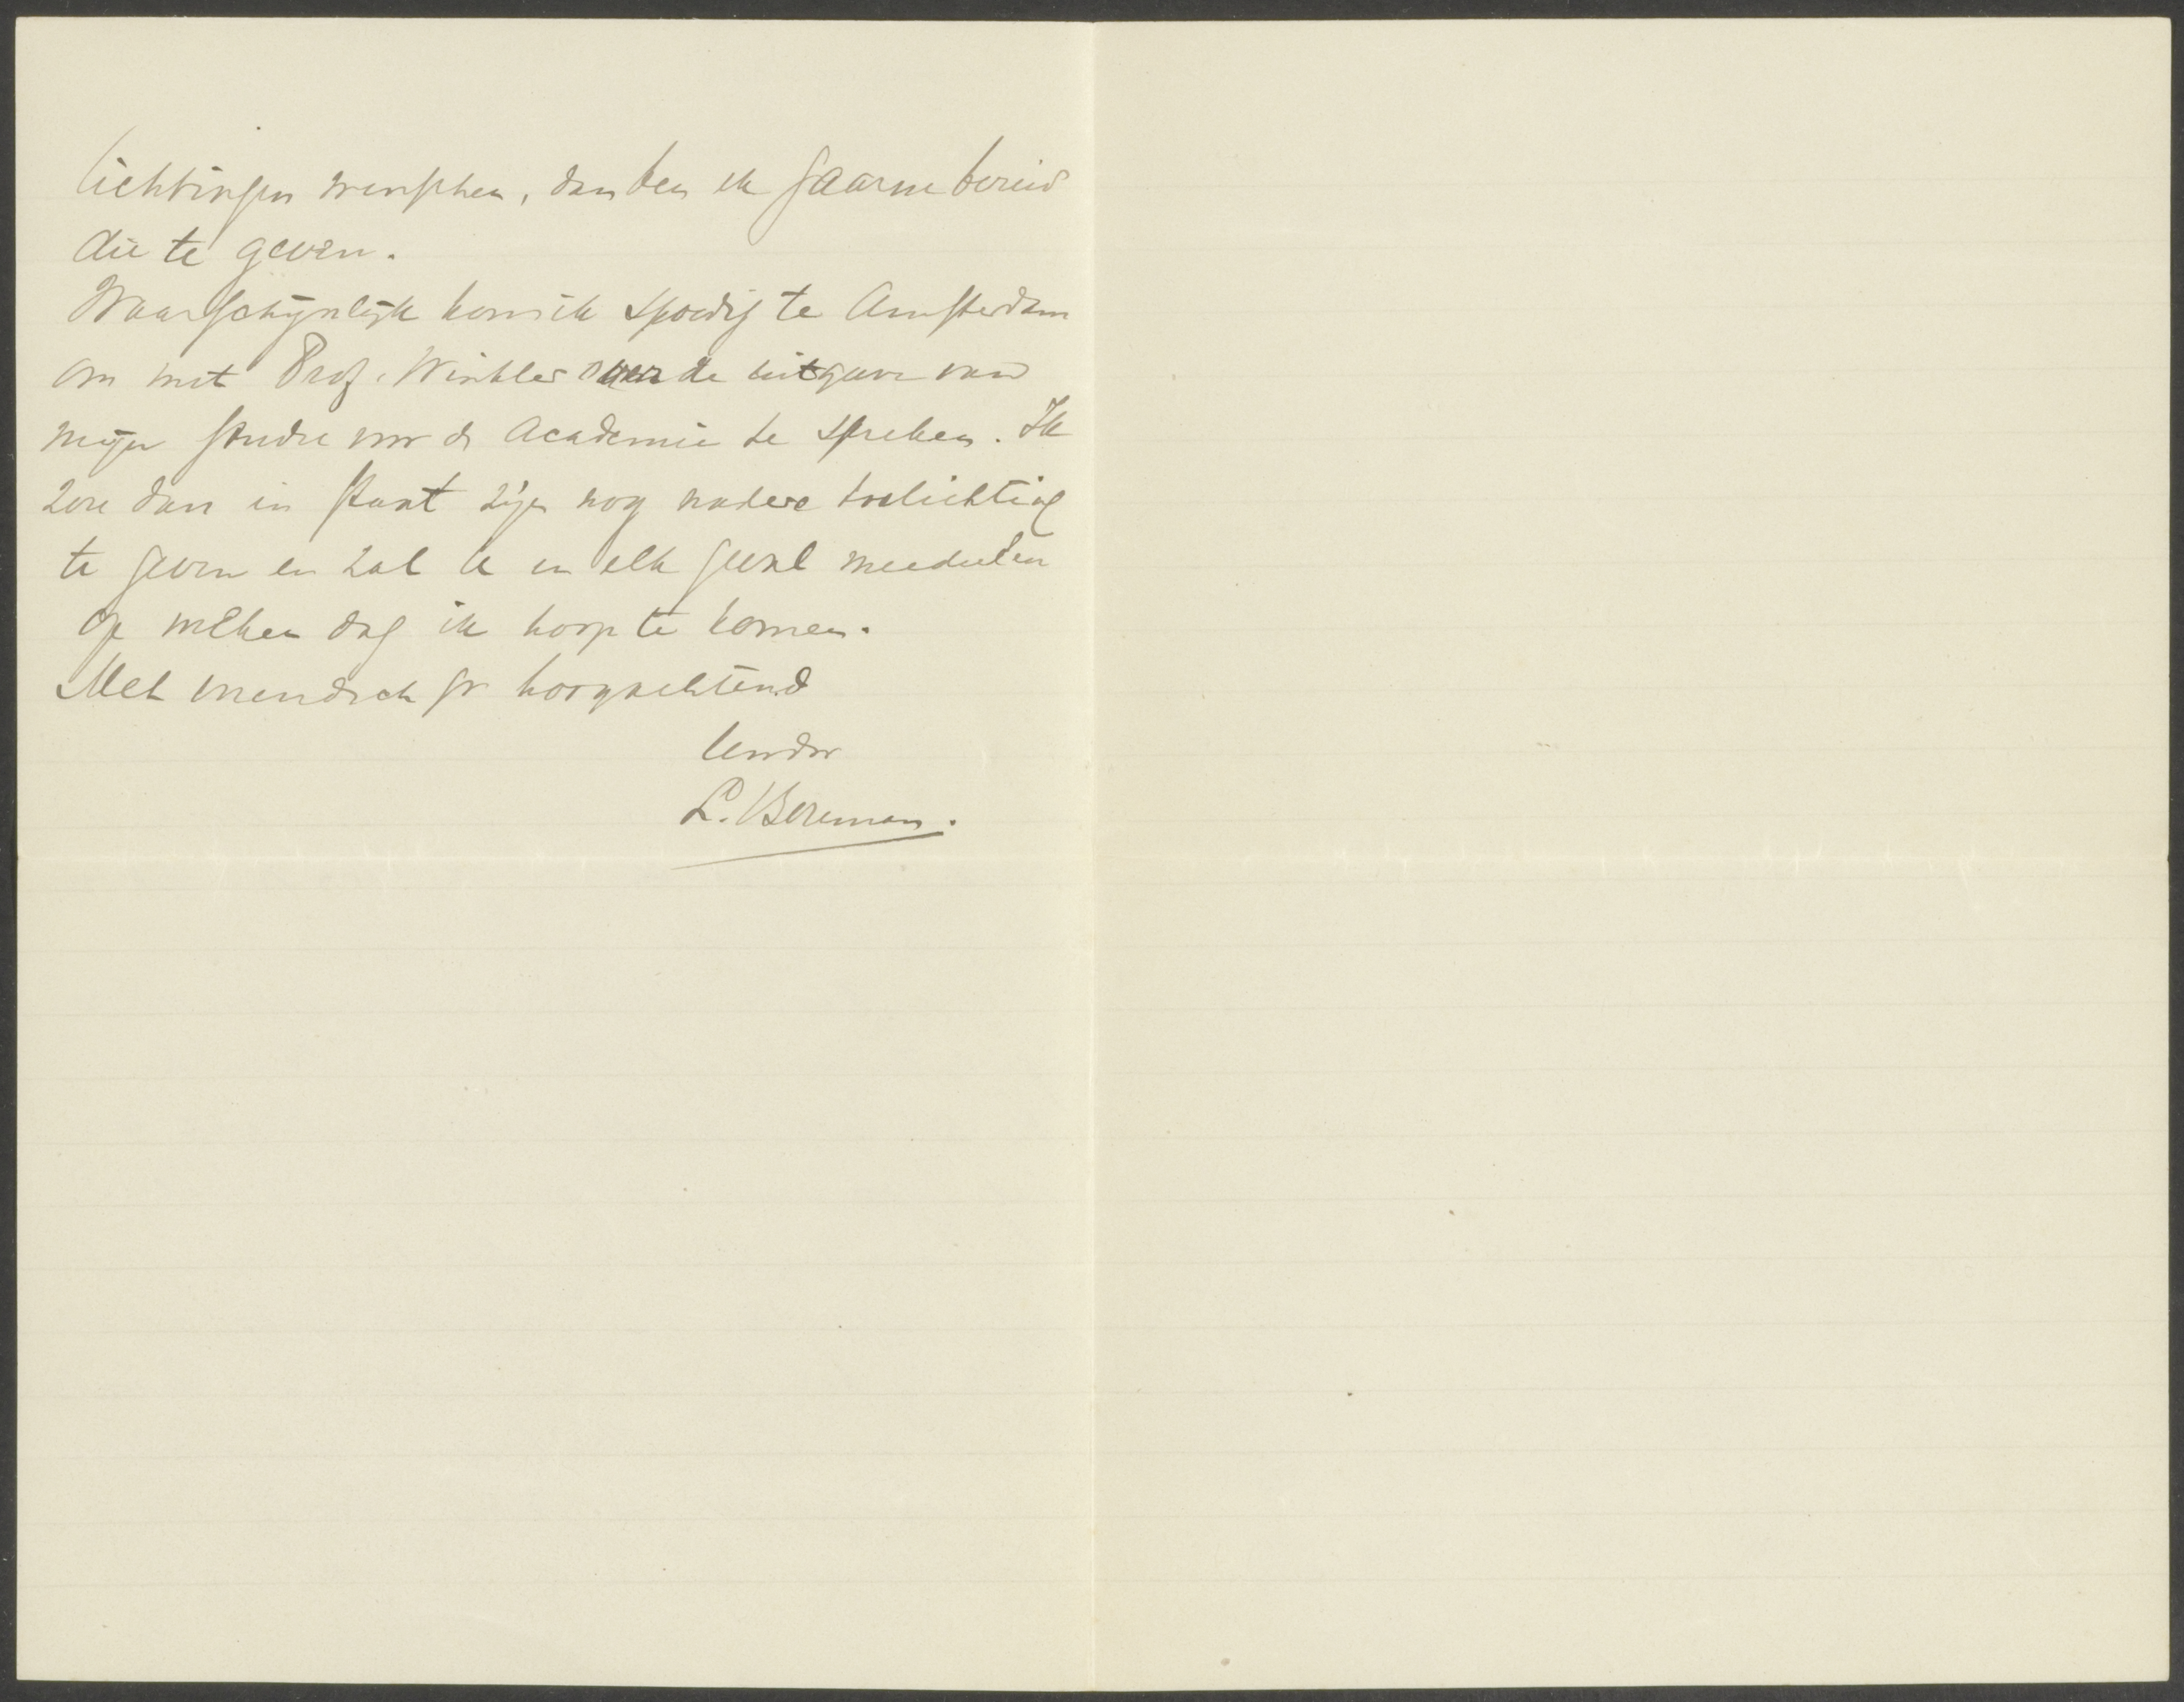 lichtingen wenschen, dan ben ik gaarne bereid
die te geven.
Waarschijnlijk kom ik spoedig te Amsterdam
om met Prof. Winkler over de uitgave van
mijn studie voor de Academie te spreken. Ik
zou dan in staat zijn nog nadere toelichting
te geven en zal U in elk geval meedeelen
op welken dag ik hoop te komen.
Met vriendsch gr hoogachtend
Uw dw
L.